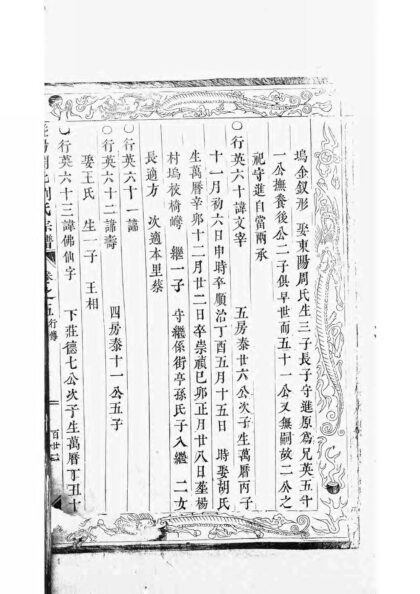 塢金釵形　娶東陽周氏生三子長子守進原爲兄英五十
一公撫養後公二子俱早世而五十一公又無嗣故二公之
祀守進自當兩承
○行英六十諱文宰　五房泰廿六公次子生萬曆丙子
十一月初六日申時卒順治丁酉五月十五日　時娶胡氏
生萬曆辛卯十二月廿二日卒崇禎己卯正月廿八日塟楊
村塢被椅嶀　繼一子　守繼係街亭孫氏子入繼　二女
長適方　次適本里蔡
○行英六十一諱
○行英六十二諱壽　四房泰十一公五子
娶王氏　生一子　王相
○行英六十三諱佛仙字　下莊德七公次子生萬曆丁丑十
周氏宗譜　卷之五　行傳　百廿二